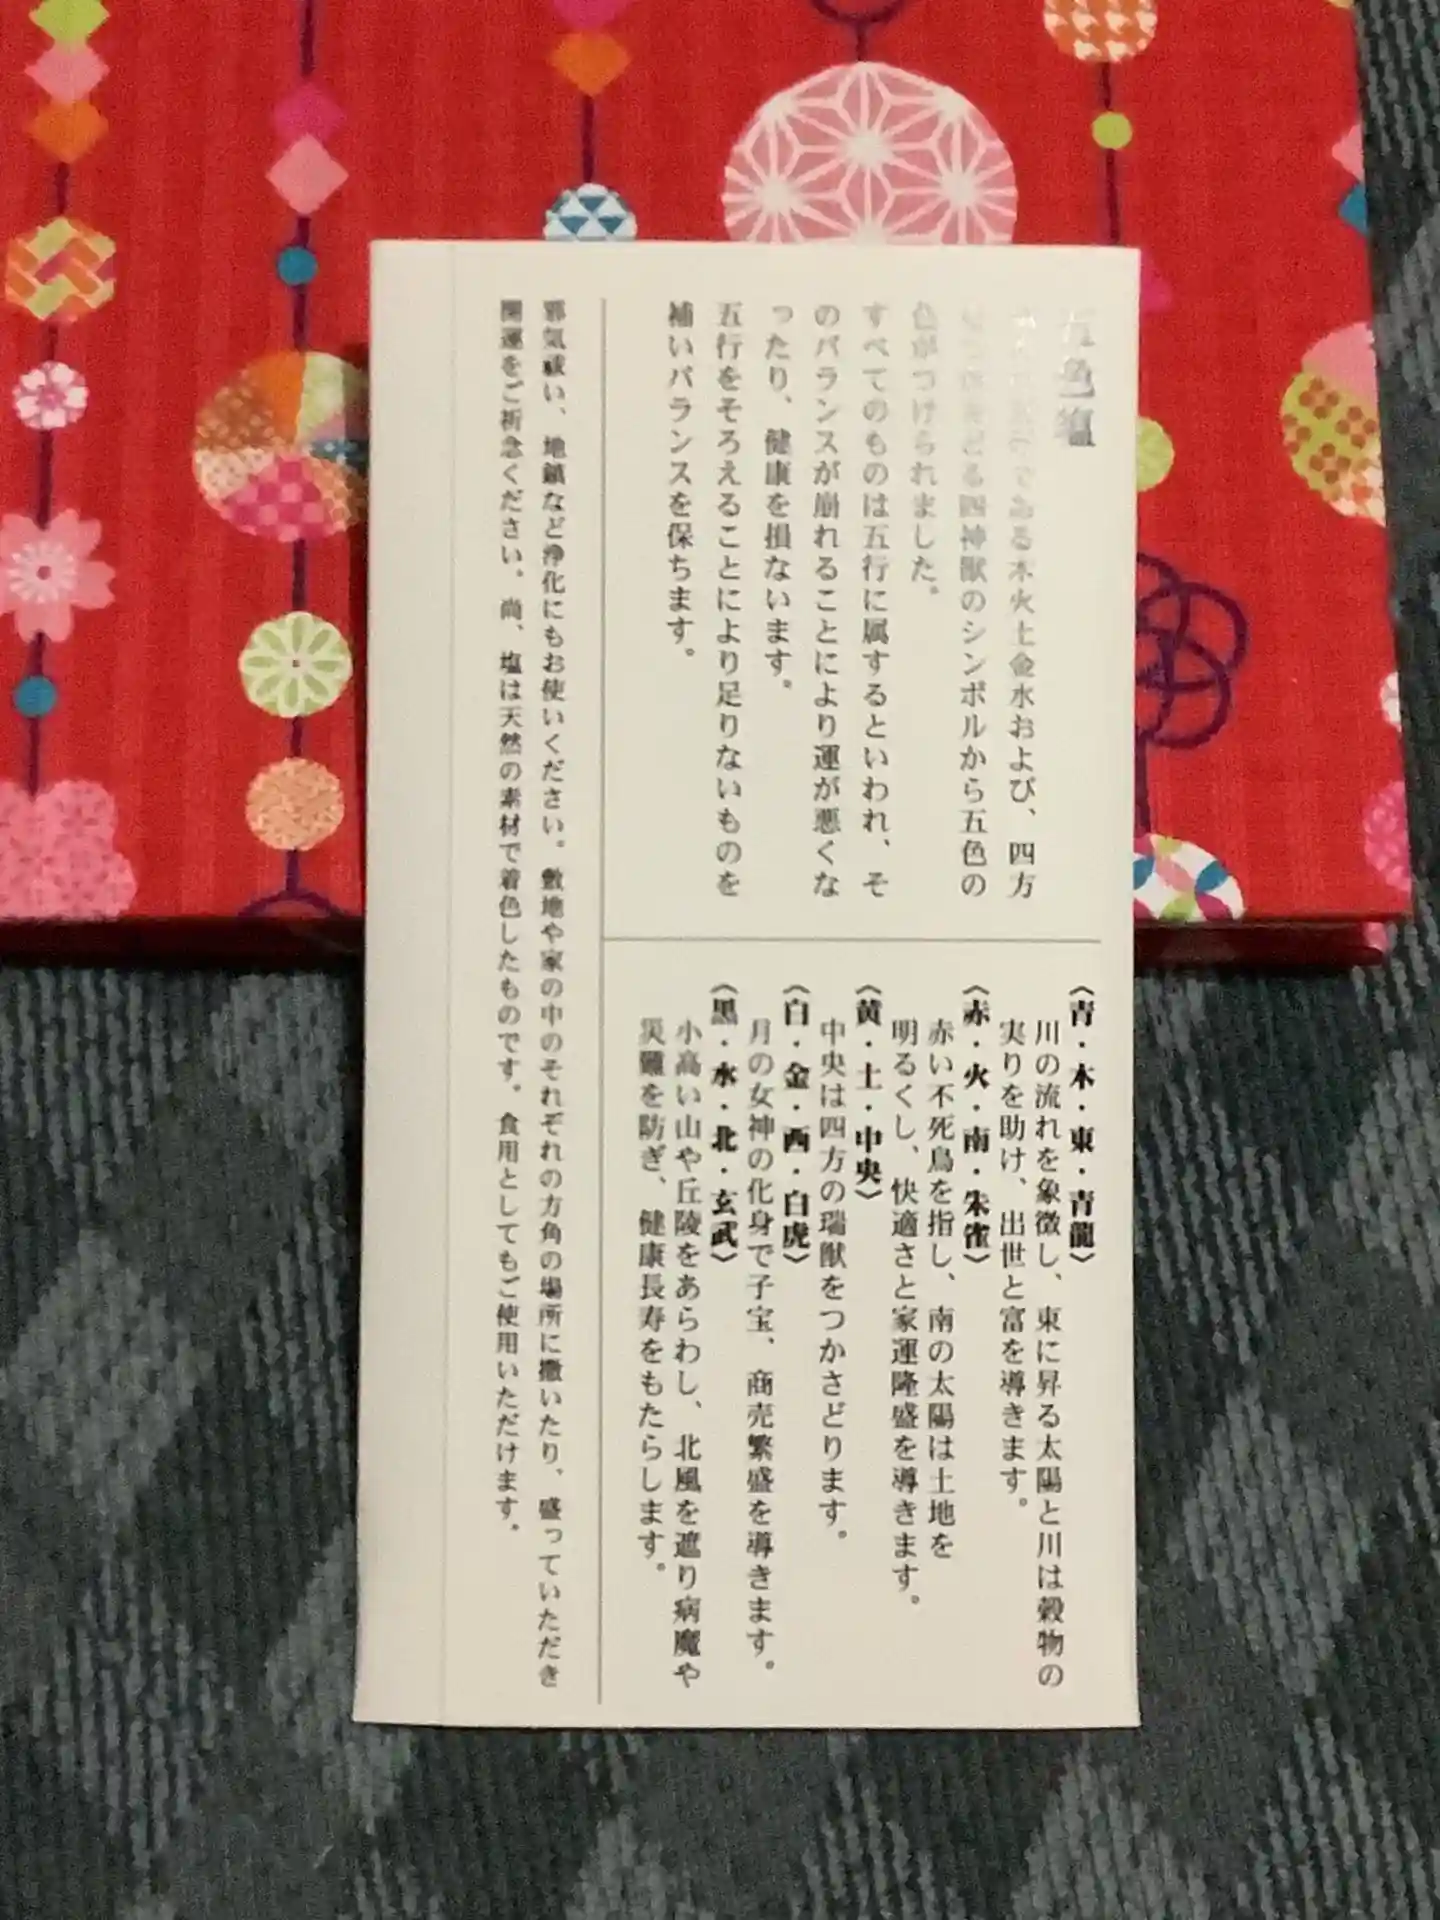 五色塩
である木火土金水および、四方
どる四神獣のシンボルから五色の
色がつけられました。
すべてのものは五行に属するといわれ、そ
のバランスが崩れることにより運が悪くな
ったり、健康を損ないます。
五行をそろえることにより足りないものを
補いバランスを保ちます。
〈青・木・東・青龍〉
川の流れを象徴し、東に昇る太陽と川は穀物の
実りを助け、出世と富を導きます。
〈赤・火・南・朱雀〉
赤い不死鳥を指し、南の太陽は土地を
明るくし、快適さと家運隆盛を導きます。
〈黄・土・中央〉
中央は四方の瑞獣をつかさどります。
〈白・金・西・白虎〉
月の女神の化身で子宝、商売繁盛を導きます。
〈黒・水・北・玄武〉
小高い山や丘陵をあらわし、北風を遮り病魔や
災難を防ぎ、健康長寿をもたらします。
邪気祓い、地鎮など浄化にもお使いください。敷地や家の中のそれぞれの方角の場所に撒いたり、盛っていただき
開運をご祈念ください。尚、塩は天然の素材で着色したものです。食用としてもご使用いただけます。